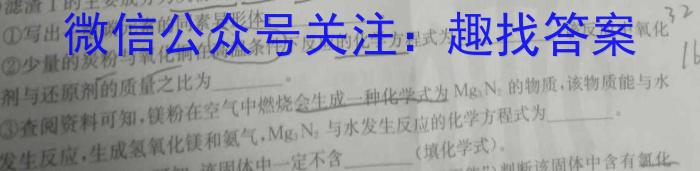 滤渣1的主要成分
微信公众号关注：趣找答案
①写出 素异形体
②少量的炭粉与氧化铜在高温条件下反应的化学方程式为 反应 氧化
剂与还原剂的质量之比为______。
32
16
③查阅资料可知,镁粉在空气中燃烧会生成一种化学式为 Mg₃N₂ 的物质,该物质能与水
发生反应,生成氢氧化镁和氨气,Mg₃N₂ 与水发生反应的化学方程式为______。
该固体中一定不含______(填化学式)。
判断该固体中含有氯化